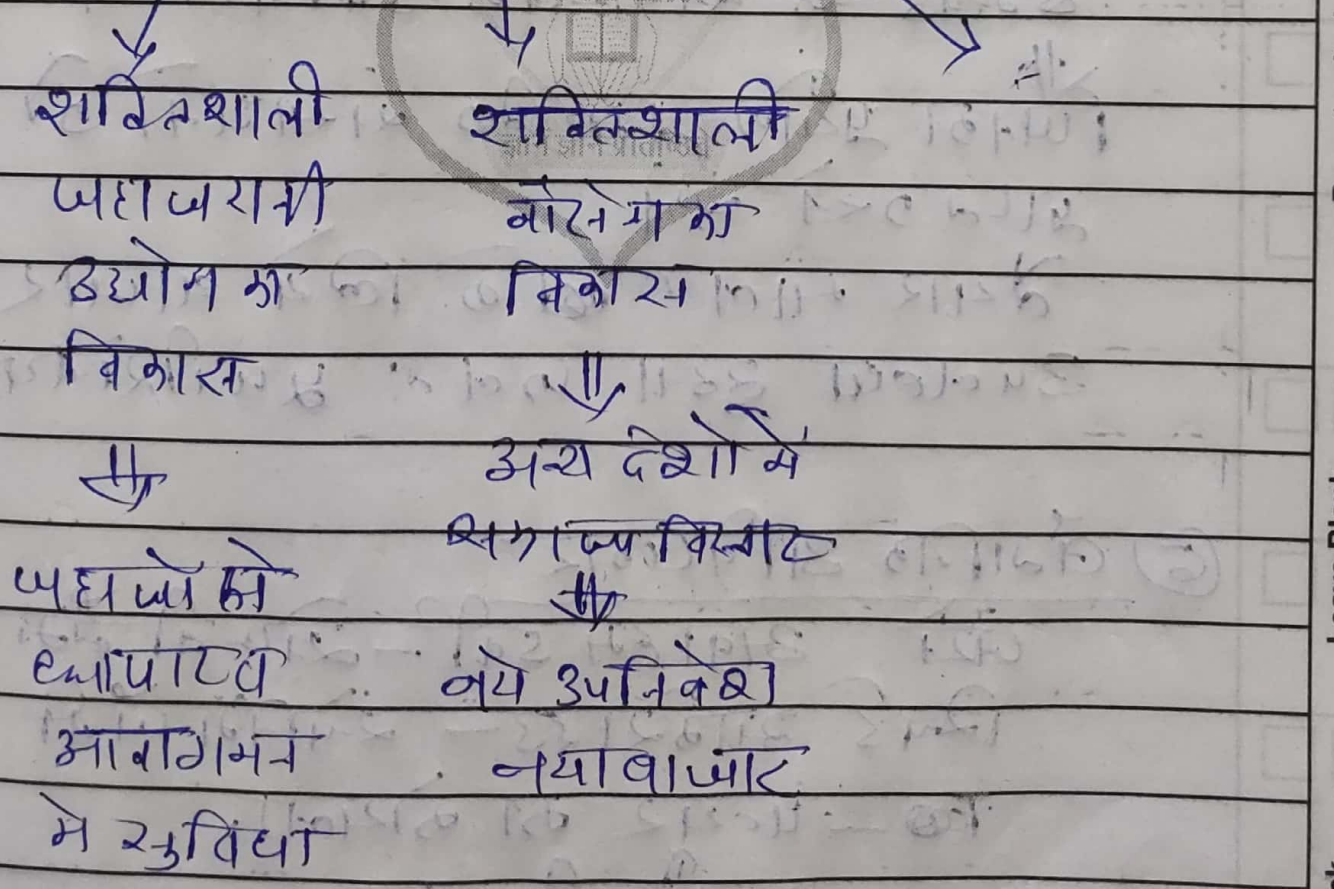 शक्तिशाली
जहाजरानी
उद्योग का
विकास
जहाजों को
व्यापार व
आवागमन
मे सुविधा
शक्तिशाली
नौसेना का
विकास
अन्य देशों में
सम्राज्य विस्तार
नये उपनिवेश
नया बाजार